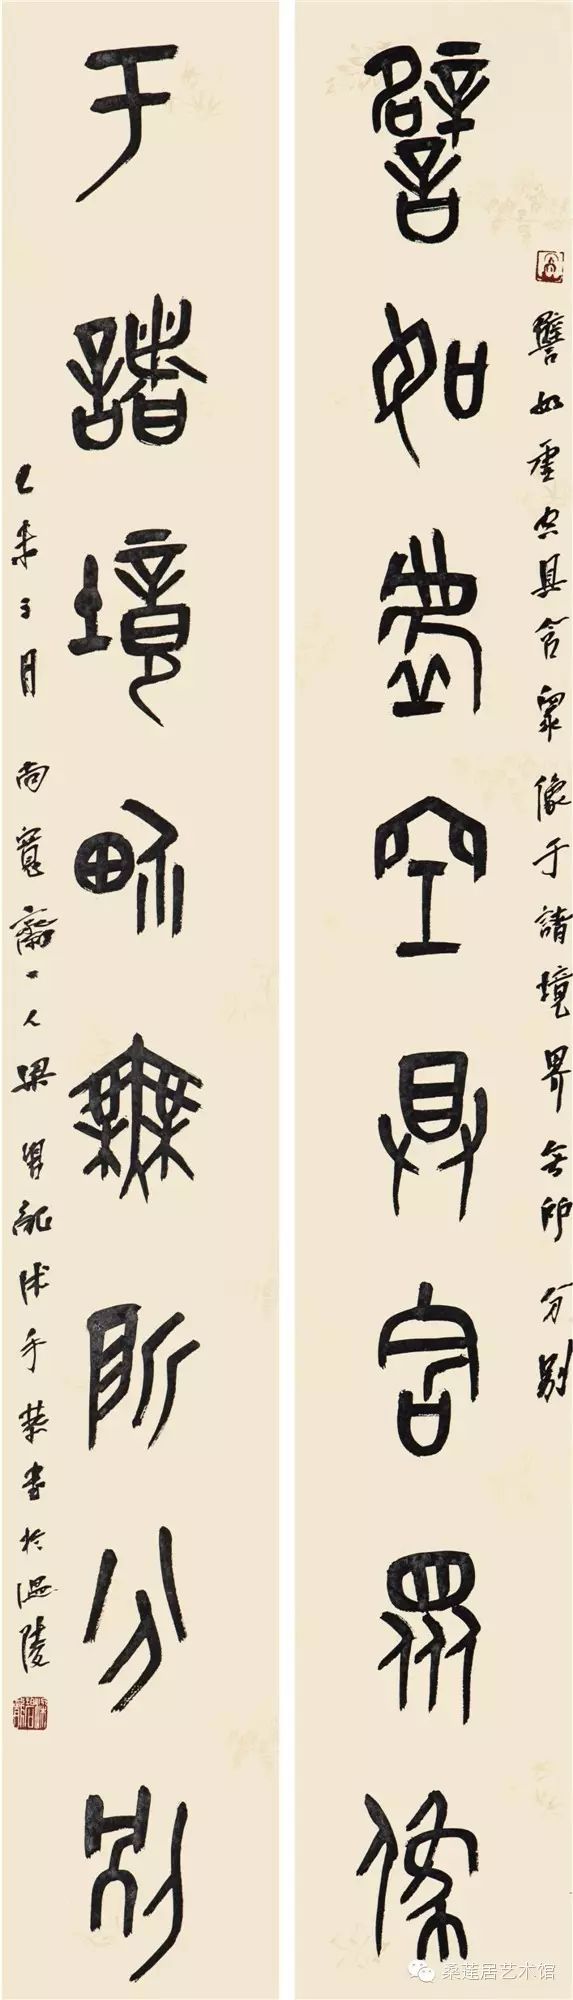 譬如虛空具含眾像
于諸境界無所分別
譬如虛空具含眾像于諸境界無所分別
乙未子月尚寬齋主人梁習龍沐手恭書於溫陵
桑莲居艺术馆